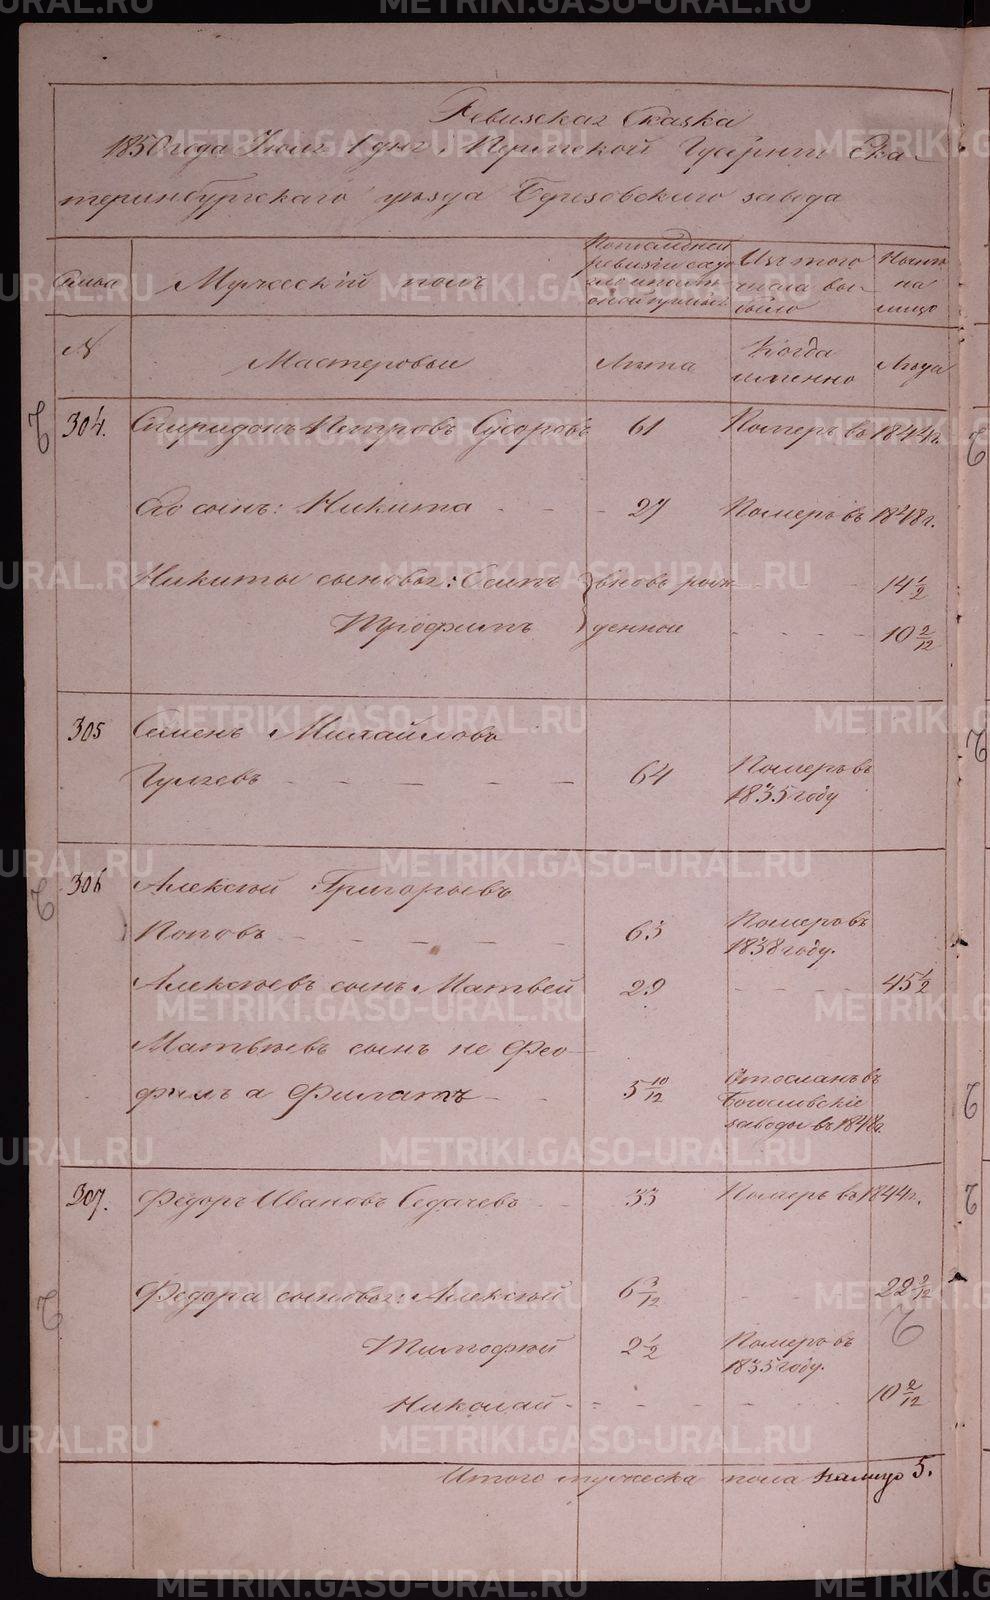 Ревизская Сказка
1850 года Июля 1 дня Пермской Губернiи Ека-
теринбургскаго уѣзда Березовскаго завода
Семья
Мужескiй полъ
По последней
ревизiи состо
Изъ того
числа вы-
было
Нынѣ
на
лицо
№
Мастеровыи
Лѣта
Когда
именно
Лѣта
304. Спиридонъ Петровъ Сусоровъ 61 Померъ въ 1844 г.
Его сынъ: Никита - - - 27 Померъ въ 1848 г.
Никиты сыновья: Осипъ вновь рож- - - - 14 1/2
Трофимъ денныи - - - - 10 2/12
305 Семенъ Михайловъ
Гуляевъ - - - - - - 64 Померъ въ
1835 году
306 Алексѣй Григорьевъ
Поповъ - - - - - 63 Померъ въ
1838 году.
Алексѣевъ сынъ Матвей 29 - - - - 45 1/2
Матвѣевъ сынъ не Фео-
филъ а Филатъ - - 5 10/12 Отосланъ въ
Богословскiе
заводы въ 184
307. Федоръ Ивановъ Седачевъ - - 33 Померъ въ 1844 г.
Федора сыновья: Алексѣй 6 3/12 - - 22 9/12
Тимофѣй 2 1/2 Померъ въ
1835 году.
Николай - - - - - - - 10 2/12
Итого мужеска пола налицо 5.
METRIKI.GASO-URAL.RU